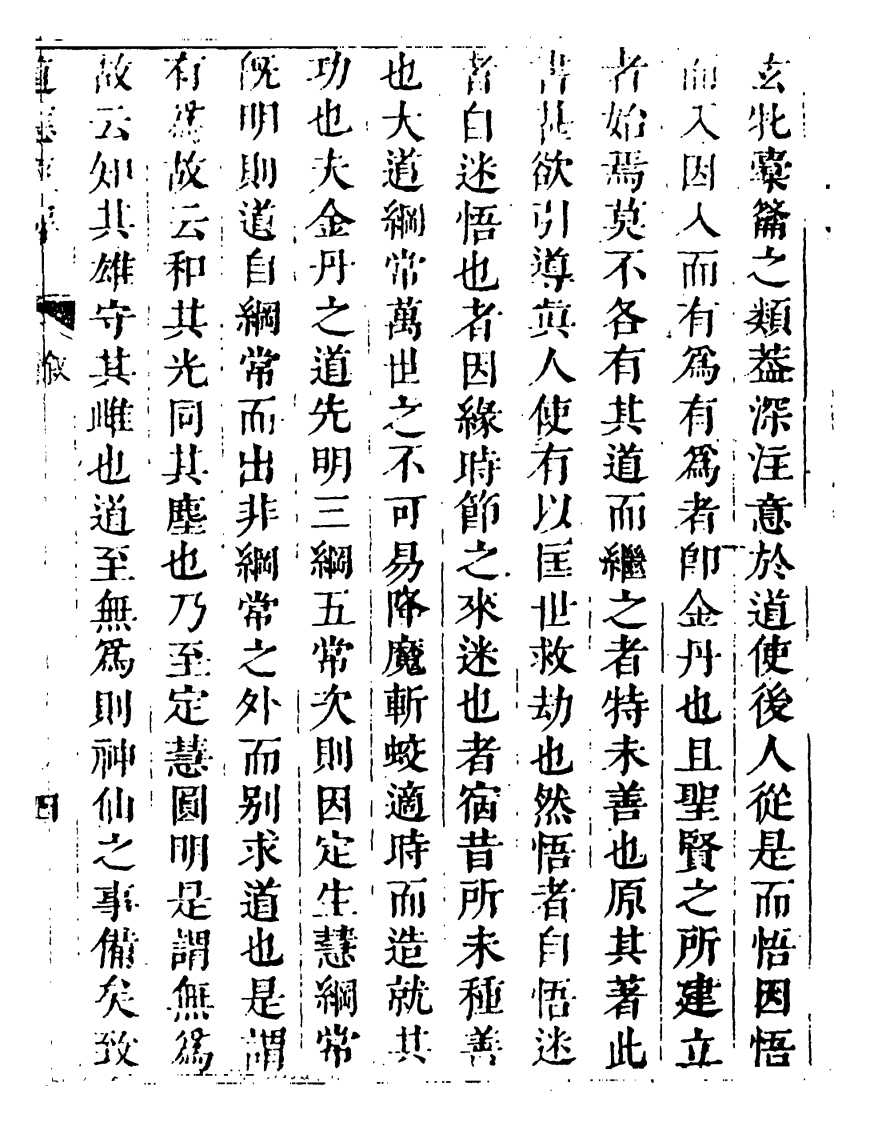 玄牝橐籥之類葢深注意於道使後人從是而悟因悟
而入因人而有爲有爲者卽金丹也且聖賢之所建立
者始焉莫不各有其道而繼之者特未善也原其著此
書甚欲引導眞人使有以匡世救劫也然悟者自悟迷
者自迷悟也者因緣時節之來迷也者宿昔所未種善
也大道綱常萬世之不可易降魔斬蛟適時而造就其
功也夫金丹之道先明三綱五常次則因定生慧綱常
旣明則道自綱常而出非綱常之外而别求道也是謂
有爲故云和其光同其塵也乃至定慧圓明是謂無爲
故云知其雄守其雌也道至無爲則神仙之事備矣致
叙
四